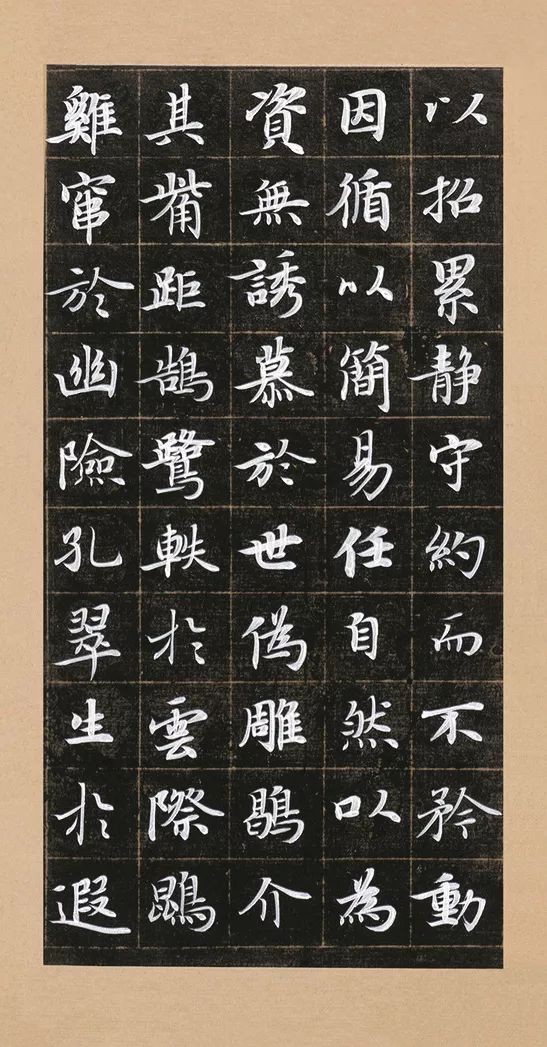 以招累静守約而不矜動
因循以簡易任自然以為
資無誘慕於世偽雕鶡介
其觜距鵠鷺軼扵雲際鵾
雞竄於幽險孔翠生扵遐